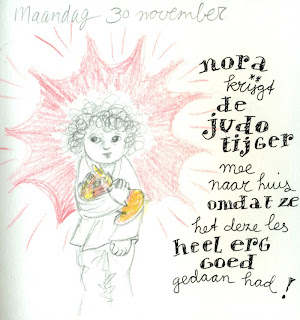 Maandag 30 november
nora
krijgt
de
judo
tijger
mee
naar huis
omdat ze
het deze les
heel erg
goed
gedaan had!